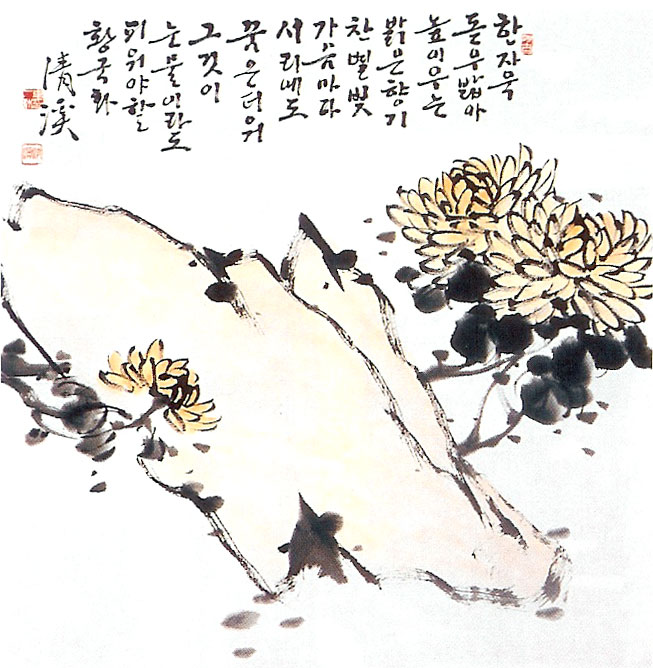 한자욱
돋우밟아
높이우는
밝은향기
찬별빛
가슴마다
서리내도
꿈은더워
그것이
눈물이라도
피워야할
황국화
清溪